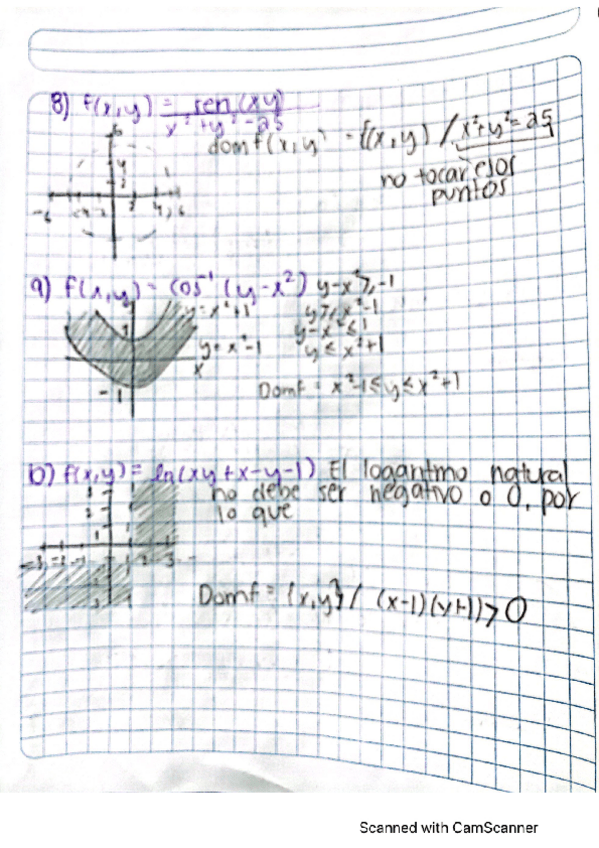 8) f(x,y) = sen(xy)
x² + y² - 25
domf(x,y) = {(x,y) / x²+y²=25
no tocar esos
puntos
6
4
2
-6 -4 -2 2 4 6
9) f(x,y) = cos⁻¹ (y-x²) y-x² ≥ -1
y = x²+1 y ≥ x²-1
y-x² ≤ 1
y = x²-1 y ≤ x²+1
x
-1
Domf = x²-1 ≤ y ≤ x²+1
10) f(x,y) = ln(xy+x-y-1) El logaritmo natural
no debe ser negativo o 0, por
lo que
Domf = {x,y} / (x-1)(y+1) > 0
Scanned with CamScanner